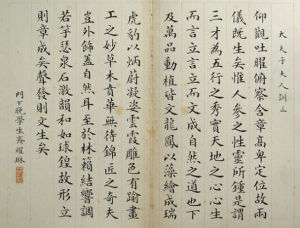 太夫子大人訓正
仰觀吐曜俯察含章高卑定位故兩
儀既生矣惟人參之性靈所鍾是謂
三才為五行之秀實天地之心心生
而言立言立而文成自然之道也下
及萬品動植皆文龍鳳以藻繪成瑞
虎豹以炳蔚凝姿雲霞雕色有踰畫
工之妙草木賁華無待錦匠之奇夫
豈外飾蓋自然耳至於林籟結響調
若竽瑟泉石激韻和如球鍠故形立
則章成矣聲發則文生矣
門下晚學生齊耀琳